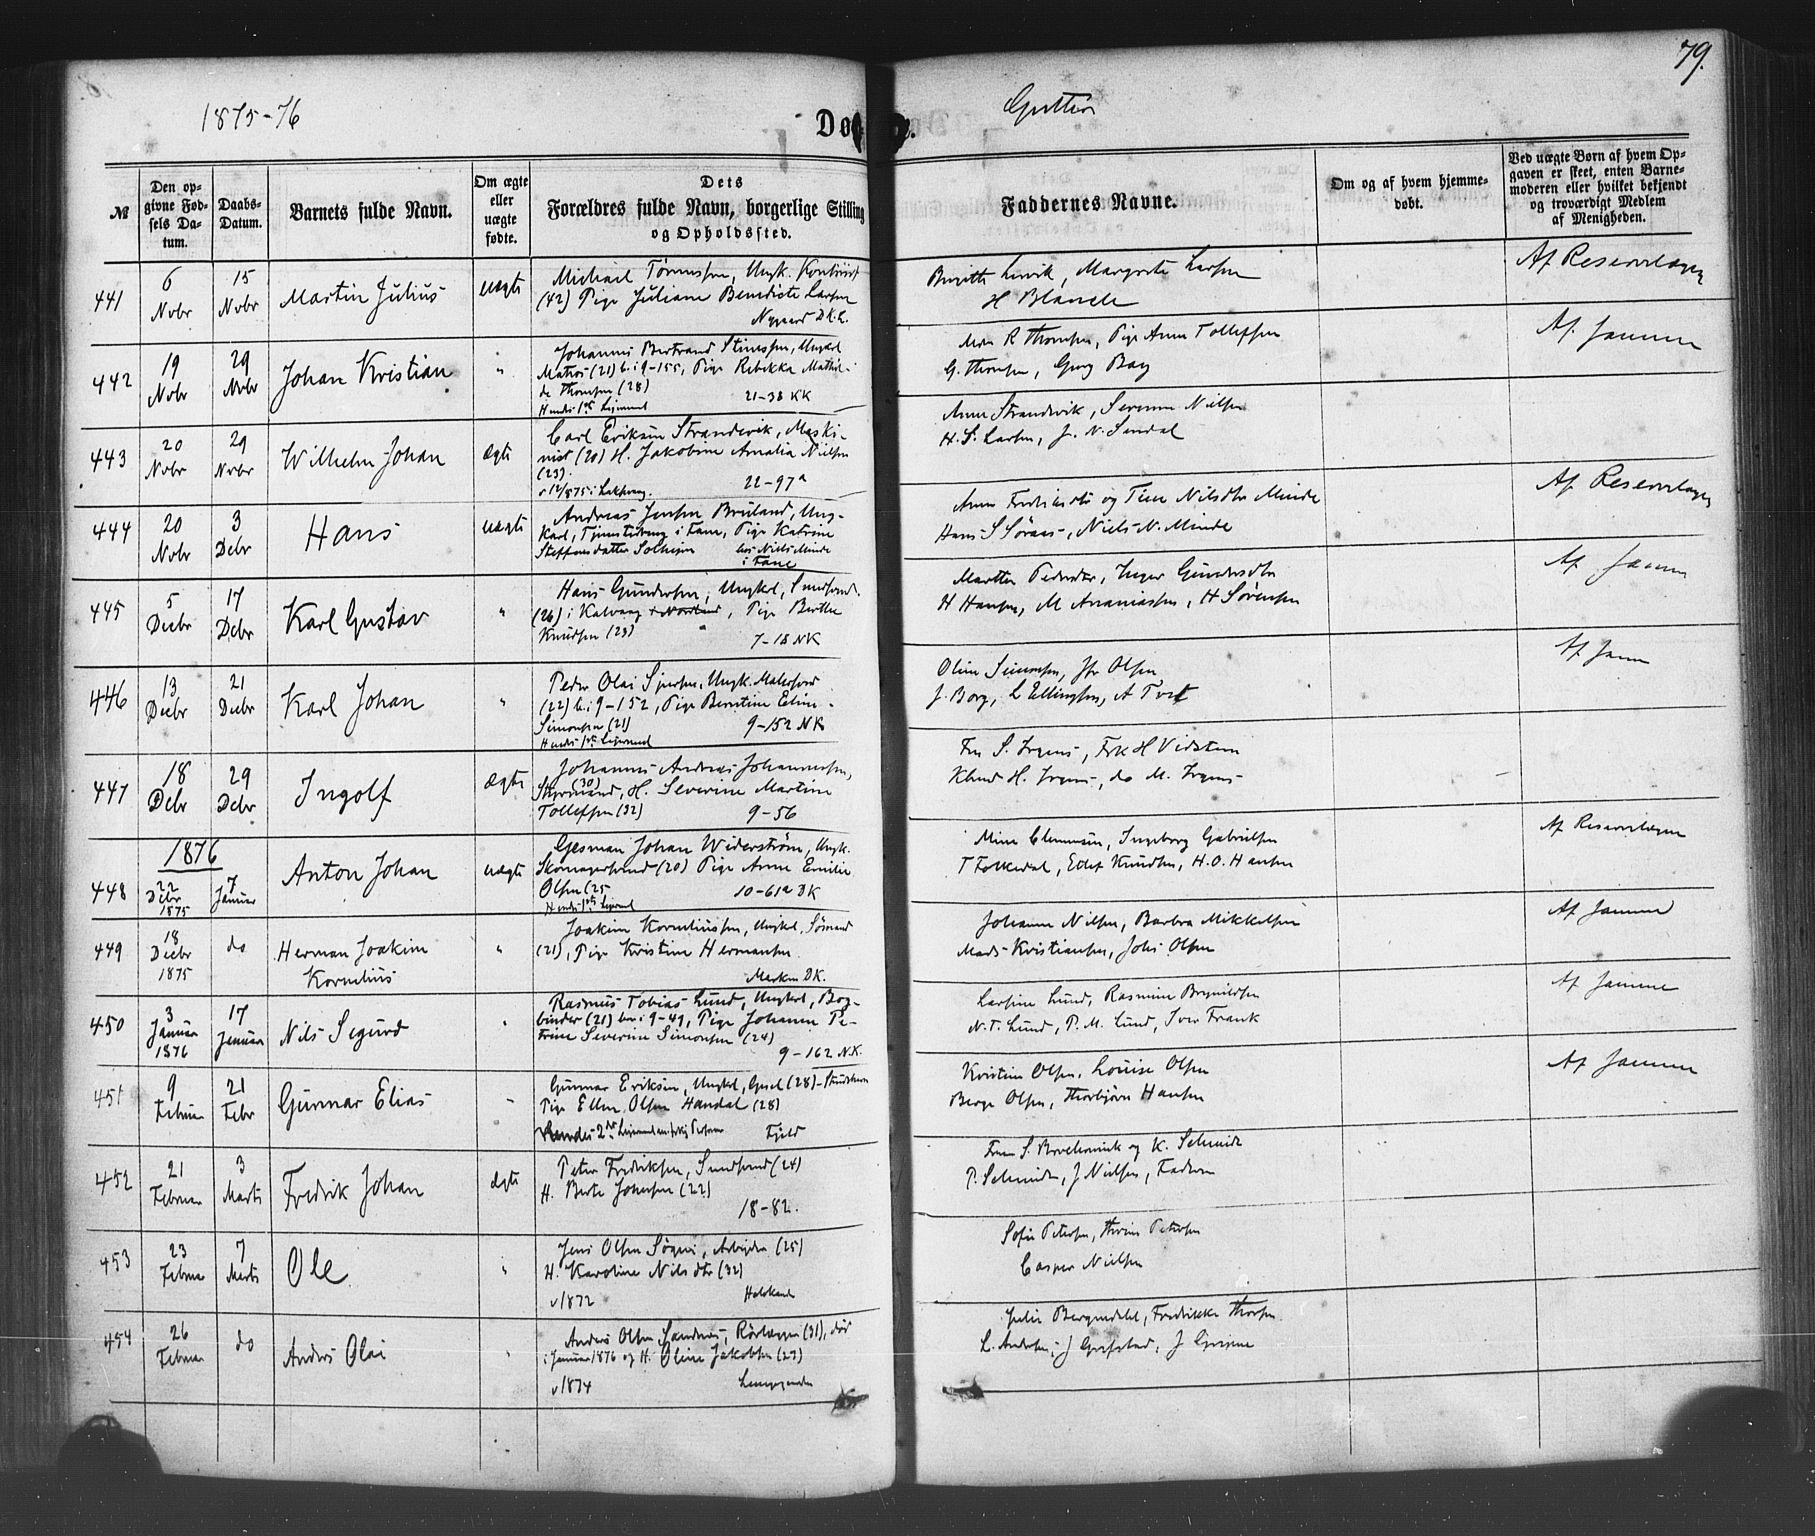 79.
1875-76
Gutter
Do
№
Den op-
givne Fød-
sels Da-
tum.
Daabs-
Datum.
Barnets fulde Navn.
Om ægte
eller
uægte
fødte.
Dets
Forældres fulde Navn, borgerlige Stilling
og Opholdssted.
Faddernes Navne.
Om og af hvem hjemme-
døbt.
Ved uægte Børn af hvem Op-
gaven er skeet, enten Barne-
moderen eller hvilket bekjendt
og troværdigt Medlem
af Menigheden.
441
6
Novbr
15
Novbr
Martin Julius
uægte
Michael Tønnesen, Ungk.
(42) Pige Juliane Benedicte Larsen
Nygaard D.K.
Birgitte Lervik, Margrete Larsen
H
Af Reservelægen
442
19
Novbr
29
Novbr
Johan Kristian
"
Johannes Bertrand Stinessen, Ungkl
Matros (21) b. i 9-155, Pige Rebekka Mathil-
de Thomsen (28)
21-38 KK
R Thomsen, Pige Anne Tollefsen
G. Thomsen, Georg Bay
Af Samme
443
20
Novbr
29
Novbr
Wilhelm Johan
Ægte
Carl Eriksen Strandevik, Maski-
nist (20) H. Jakobine Amalia Nielsen
(23)
22-97a
Anne Strandevik, Severine Nielsen
H. S. Larsen, J. N. Sundal
444
20
Novbr
3
Debr
Hans
uægte
Andreas Jensen Bruland, Ung-
karl, Tjenestedreng i Fane, Pige Katrine
Steffensdatter Solheim
hos Niels Minde
i Fane
Anne Fredriksdtr og Tine Nilsdtr Minde
Hans S Søraas, Niels N. Minde
Af Reservelægen
445
5
Decbr
17
Debr
Karl Gustav
"
Hans Gundersen, Ungkl, Smedsvend
(26) i Kalvaag, Pige Berthe
Knudsen (23)
7-18 NK
Marthe Pedersdtr, Inger Gundersdtr
H Hansen, M Ananiassen, H Sørensen
Af Samme
446
13
Decbr
21
Decbr
Karl Johan
"
Peder Olai Sjursen, Ungk. Malersvend
(22) b. i 9-152, Pige Berntine Eline
Simonsen (21)
9-152 NK
Oline Simonsen, Jfr Olsen
J. Borg, L Ellingsen, A Tvet
Af Samme
447
18
Debr
29
Debr
Ingolf
Ægte
Johannes Andreas Johannessen,
(30)
Styrmand, H. Severine Martine
Tollefsen (32)
9-56
Fru S. Irgens, Frk H Vidsteen
H. Irgens, do M. Irgens
1876
448
22
Debr
1875
7
Januar
Anton Johan
uægte
Gesman Johan Widerstrøm, Ungk.
Skomagersvend (20) Pige Anne Emilie
Olsen (25
10-61a DK
Mine Clemmesen, Ingeborg Gabrielsen
T Folkedal, Edlef Knudsen, H. O. Hansen
Af Reservelægen
449
18
Decbr
1875
do
Herman Joakim
Kornelius
"
Joakim Korneliussen, Ungkl, Sømand
(21), Pige Kristine Hermansen
Marken DK.
Johanne Nilsen, Barbra Mikkelsen
Mads Kristiansen, Johs Olsen
Af Samme
450
3
Januar
1876
17
Januar
Nils Sigurd
"
Rasmus Tobias Lund, Ungkl, Bog-
binder (21) bor i 9-49, Pige Johanne Pe-
trine Severine Simonsen (24)
9-162 N.K.
Larsine Lund, Rasmine Brynildsen
N. T. Lund, P. M. Lund, Iver Frank
Af Samme
451
9
Februar
21
Febr
Gunnar Elias
"
Gunnar Eriksen, Ungkl, (28)
Pige Ellen Olsen Handal (28)
Fjeld
Kristine Olsen, Louise Olsen
Berge Olsen, Thorbjørn Hansen
Af Samme
452
21
Februar
3
Marts
Fredrik Johan
Ægte
Peter Fredriksen, Smedsvend (24)
H. Berte Johnsen (22)
18-82.
Fru S. og K. Schmidt
P. Schmidt, J Nielsen, Faderen
453
23
Februar
7
Marts
Ole
"
Jens Olsen Søgnen, Arbeider (25)
H. Karoline Nilsdtr (32)
v 1872
Sofie Petersen, Thrine Petersen
Casper Nielsen
454
26
Februar
do
Anders Olai
"
Anders Olsen Sandnes, Rørlægger (31), død
i Januar 1876 og H. Oline Jakobsen (23)
v 1874
Julie Bergendahl, Fredrikke Thorsen
L. Andersen, J Grafstad, J